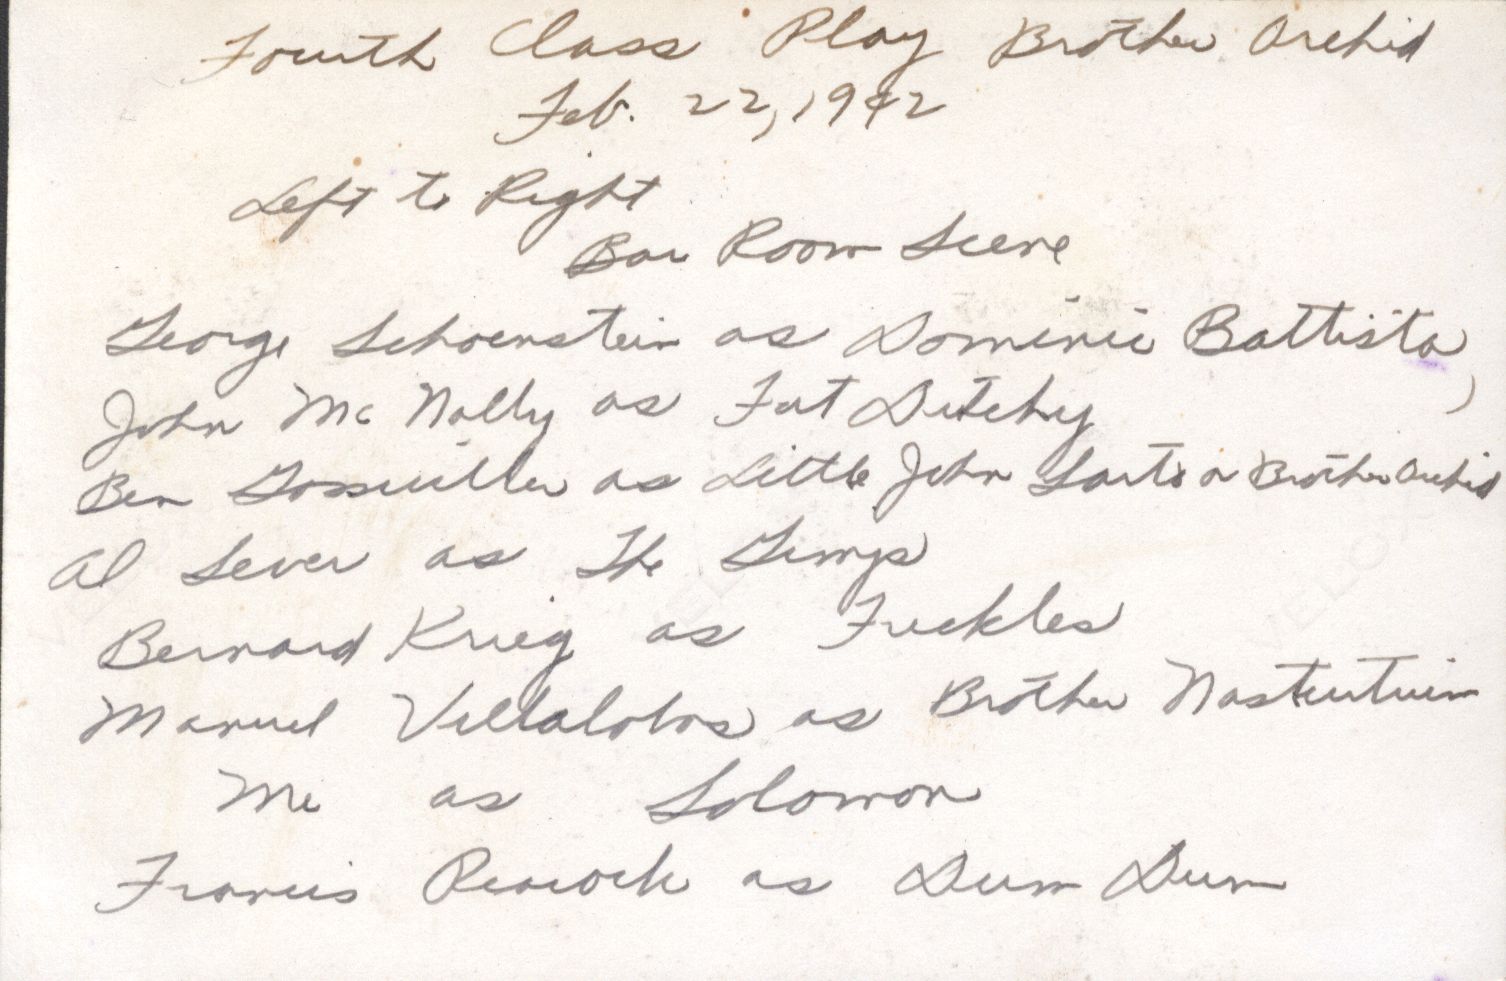 Fourth Class Play Brother Orchid
Feb. 22, 1942
Left to Right
Bar Room Scene
George Schoenstein as Dominic Battista
John McNally as Fat Dutchy
Ben as Little John Sarto or Brother Orchid
Al Sever as The Gimp
Bernard Krieg as Freckles
Manuel Villalobos as Brother
Me as Solomon
Francis Peacock as Dum Dum
VELOX